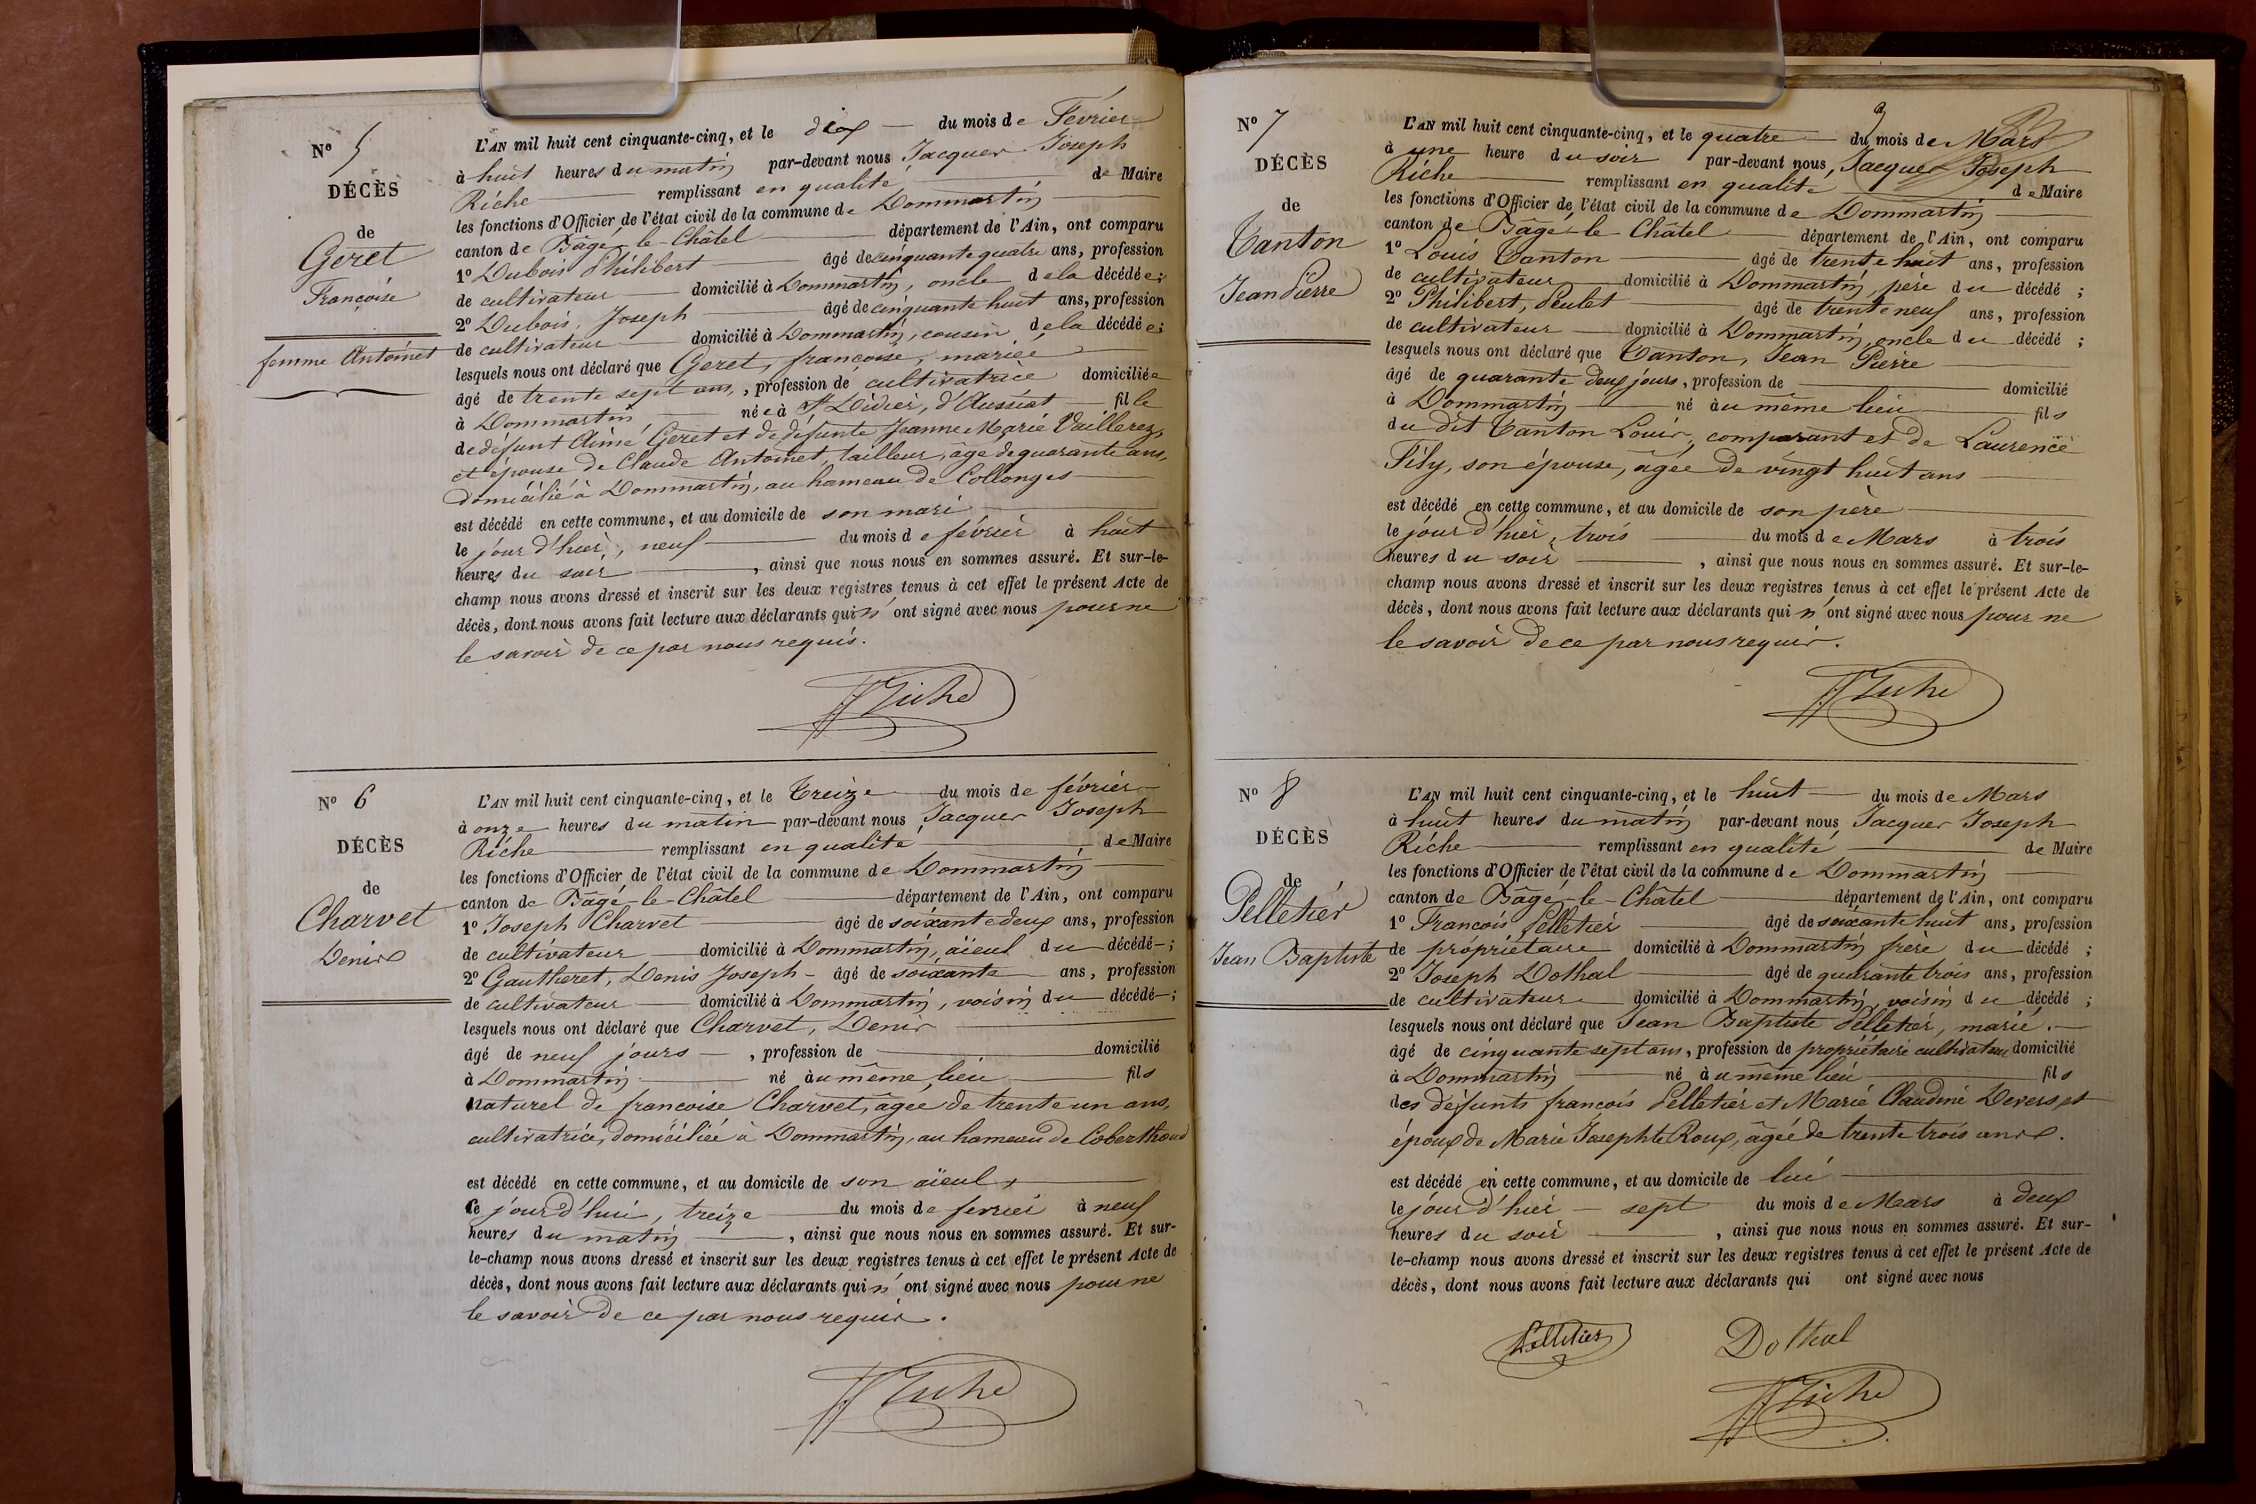 N° 5
DÉCÈS
de
Geret
Françoise
femme Antoinet
L'AN mil huit cent cinquante-cinq, et le dix du mois de Février
à huit heures du matin par-devant nous Jacques Joseph
Riche remplissant en qualité de Maire
les fonctions d'Officier de l'état civil de la commune de Dommartin
canton de Bâgé-le-Châtel département de l'Ain, ont comparu
1° Dubois Philibert âgé de cinquante quatre ans, profession
de cultivateur domicilié à Dommartin, oncle de la décédée;
2° Dubois, Joseph âgé de cinquante huit ans, profession
de cultivateur domicilié à Dommartin, cousin de la décédée;
lesquels nous ont déclaré que Geret, françoise, mariée
âgé de trente sept ans, profession de cultivatrice domiciliée
à Dommartin née à St Didier, d'Aussiat fille
de défunt Aimé Geret et de défunte Jeanne Marie Vaillerez,
et épouse de Claude Antoinet, tailleur, âgé de quarante ans,
domicilié à Dommartin, au hameau de Collonges
est décédé en cette commune, et au domicile de son mari
le jour d'hier, neuf du mois de février à huit
heures du soir, ainsi que nous nous en sommes assuré. Et sur-le-
champ nous avons dressé et inscrit sur les deux registres tenus à cet effet le présent Acte de
décès, dont nous avons fait lecture aux déclarants qui n'ont signé avec nous pour ne
le savoir de ce par nous requis.
JJ Riche
N° 6
DÉCÈS
de
Charvet
Denis
L'AN mil huit cent cinquante-cinq, et le Treize du mois de février
à onze heures du matin par-devant nous Jacques Joseph
Riche remplissant en qualité de Maire
les fonctions d'Officier de l'état civil de la commune de Dommartin
canton de Bâgé-le-Châtel département de l'Ain, ont comparu
1° Joseph Charvet âgé de soixante deux ans, profession
de cultivateur domicilié à Dommartin, aïeul du décédé;
2° Gautheret, Denis Joseph - âgé de soixante ans, profession
de cultivateur domicilié à Dommartin, voisin du décédé;
lesquels nous ont déclaré que Charvet, Denis
âgé de neuf jours, profession de domicilié
à Dommartin né au même lieu fils
naturel de françoise Charvet, âgée de trente un ans,
cultivatrice, domiciliée à Dommartin, au hameau de Coberthoud
est décédé en cette commune, et au domicile de son aïeul,
ce jourd'hui, treize du mois de fevrier à neuf
heures du matin, ainsi que nous nous en sommes assuré. Et sur-
le-champ nous avons dressé et inscrit sur les deux registres tenus à cet effet le présent Acte de
décès, dont nous avons fait lecture aux déclarants qui n'ont signé avec nous pour ne
le savoir de ce par nous requis.
JJ Riche
N° 7
DÉCÈS
de
Tanton
Jean Pierre
3
L'AN mil huit cent cinquante-cinq, et le quatre du mois de Mars
à une heure du soir par-devant nous, Jacques Joseph
Riche remplissant en qualité de Maire
les fonctions d'Officier de l'état civil de la commune de Dommartin
canton de Bâgé-le-Châtel département de l'Ain, ont comparu
1° Louis Tanton âgé de trente huit ans, profession
de cultivateur domicilié à Dommartin, père du décédé;
2° Philibert, Peulet âgé de trente neuf ans, profession
de cultivateur domicilié à Dommartin, oncle du décédé;
lesquels nous ont déclaré que Tanton, Jean Pierre
âgé de quarante deux jours, profession de domicilié
à Dommartin né au même lieu fils
du dit Tanton Louis, comparant et de Laurence
Fily, son épouse, âgée de vingt huit ans
est décédé en cette commune, et au domicile de son père
le jour d'hier, trois du mois de Mars à trois
heures du soir, ainsi que nous nous en sommes assuré. Et sur-le-
champ nous avons dressé et inscrit sur les deux registres tenus à cet effet le présent Acte de
décès, dont nous avons fait lecture aux déclarants qui n'ont signé avec nous pour ne
le savoir de ce par nous requis.
JJ Riche
N° 8
DÉCÈS
de
Pelletier
Jean Baptiste
L'AN mil huit cent cinquante-cinq, et le huit du mois de Mars
à huit heures du matin par-devant nous Jacques Joseph
Riche remplissant en qualité de Maire
les fonctions d'Officier de l'état civil de la commune de Dommartin
canton de Bâgé-le-Châtel département de l'Ain, ont comparu
1° François Pelletier âgé de soixante huit ans, profession
de propriétaire domicilié à Dommartin frère du décédé;
2° Joseph Dothal âgé de quarante trois ans, profession
de cultivateur domicilié à Dommartin, voisin du décédé;
lesquels nous ont déclaré que Jean Baptiste Pelletier, marié.
âgé de cinquante sept ans, profession de propriétaire cultivateur domicilié
à Dommartin né au même lieu fils
des défunts françois Pelletier et Marie Claudine Devers, et
époux de Marie Josephte Roux, âgée de trente trois ans.
est décédé en cette commune, et au domicile de lui
le jour d'hier - sept du mois de Mars à deux
heures du soir, ainsi que nous nous en sommes assuré. Et sur-
le-champ nous avons dressé et inscrit sur les deux registres tenus à cet effet le présent Acte de
décès, dont nous avons fait lecture aux déclarants qui ont signé avec nous
Pelletier Dothal
JJ Riche